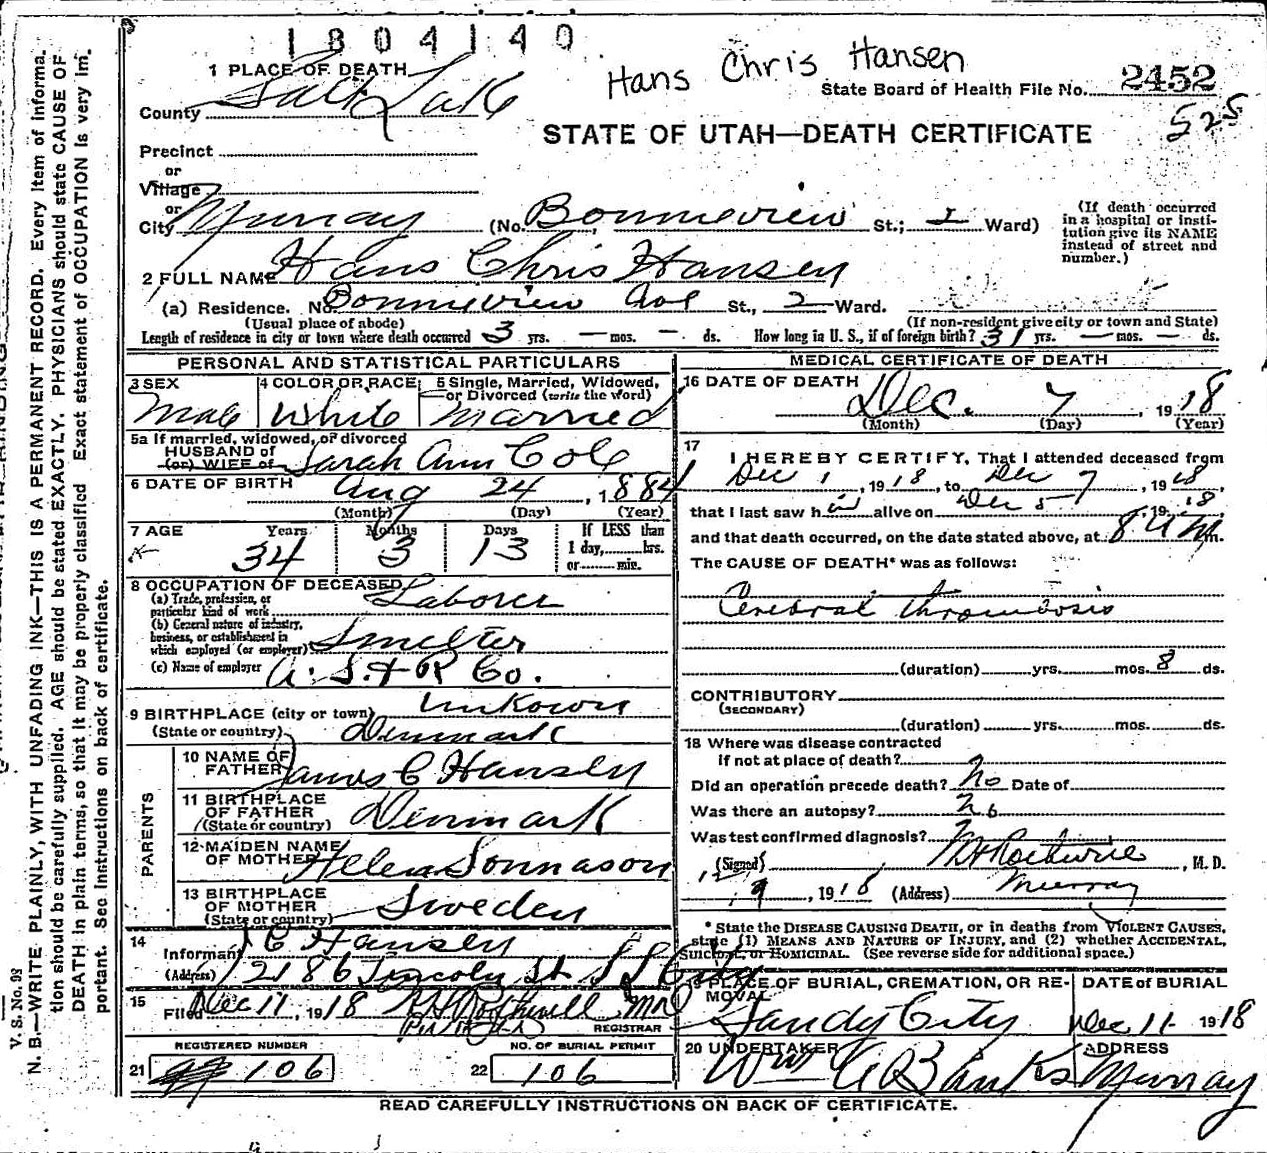 1804140
Hans Chris Hansen
1 PLACE OF DEATH
County Salt Lake
State Board of Health File No. 2452
525
STATE OF UTAH—DEATH CERTIFICATE
Precinct
or
Village
or
City Murray (No. Bonneview St.; 2 Ward)
(If death occurred in a hospital or institution give its NAME instead of street and number.)
2 FULL NAME Hans Chris Hansen
(a) Residence. No. Bonneview Ave St., 2 Ward.
(Usual place of abode) (If non-resident give city or town and State)
Length of residence in city or town where death occurred 3 yrs. — mos. — ds. How long in U. S., if of foreign birth? 31 yrs. — mos. — ds.
PERSONAL AND STATISTICAL PARTICULARS
3 SEX Male
4 COLOR OR RACE White
5 Single, Married, Widowed, or Divorced (write the word) Married
5a If married, widowed, or divorced
HUSBAND of
(or) WIFE of Sarah Ann Cole
6 DATE OF BIRTH Aug 24, 1884
(Month) (Day) (Year)
7 AGE Years 34 Months 3 Days 13 If LESS than 1 day, hrs. or min.
8 OCCUPATION OF DECEASED
(a) Trade, profession, or particular kind of work Laborer
(b) General nature of industry, business, or establishment in which employed (or employer) Smelter
(c) Name of employer A. S. & R Co.
9 BIRTHPLACE (city or town) Unkown
(State or country) Denmark
PARENTS
10 NAME OF FATHER James C Hansen
11 BIRTHPLACE OF FATHER (State or country) Denmark
12 MAIDEN NAME OF MOTHER Helen Sonnason
13 BIRTHPLACE OF MOTHER (State or country) Sweden
14
Informant J C Hansen
(Address) 2186 Lincoln St S L City
15
Filed Dec 11, 1918 Rothwell MD
REGISTRAR
REGISTERED NUMBER
21 106
NO. OF BURIAL PERMIT
22 106
MEDICAL CERTIFICATE OF DEATH
16 DATE OF DEATH Dec. 7, 1918
(Month) (Day) (Year)
17
I HEREBY CERTIFY, That I attended deceased from
Dec 1, 1918, to Dec 7, 1918
that I last saw him alive on Dec 5, 1918
and that death occurred, on the date stated above, at 8 A m.
The CAUSE OF DEATH* was as follows:
Cerebral thrombosis
(duration) yrs. mos. 8 ds.
CONTRIBUTORY
(SECONDARY)
(duration) yrs. mos. ds.
18 Where was disease contracted
if not at place of death?
Did an operation precede death? No Date of
Was there an autopsy? No
Was test confirmed diagnosis?
(Signed) Rothwell, M. D.
12/9, 1918 (Address) Murray
* State the DISEASE CAUSING DEATH, or in deaths from VIOLENT CAUSES, state (1) MEANS AND NATURE OF INJURY, and (2) whether ACCIDENTAL, SUICIDAL, or HOMICIDAL. (See reverse side for additional space.)
19 PLACE OF BURIAL, CREMATION, OR REMOVAL Sandy City
DATE of BURIAL Dec 11 1918
20 UNDERTAKER Wm A Banks
ADDRESS Murray
READ CAREFULLY INSTRUCTIONS ON BACK OF CERTIFICATE.
V. S. No. 98
N. B.—WRITE PLAINLY, WITH UNFADING INK—THIS IS A PERMANENT RECORD. Every item of information should be carefully supplied. AGE should be stated EXACTLY. PHYSICIANS should state CAUSE OF DEATH in plain terms, so that it may be properly classified. Exact statement of OCCUPATION is very important. See instructions on back of certificate.